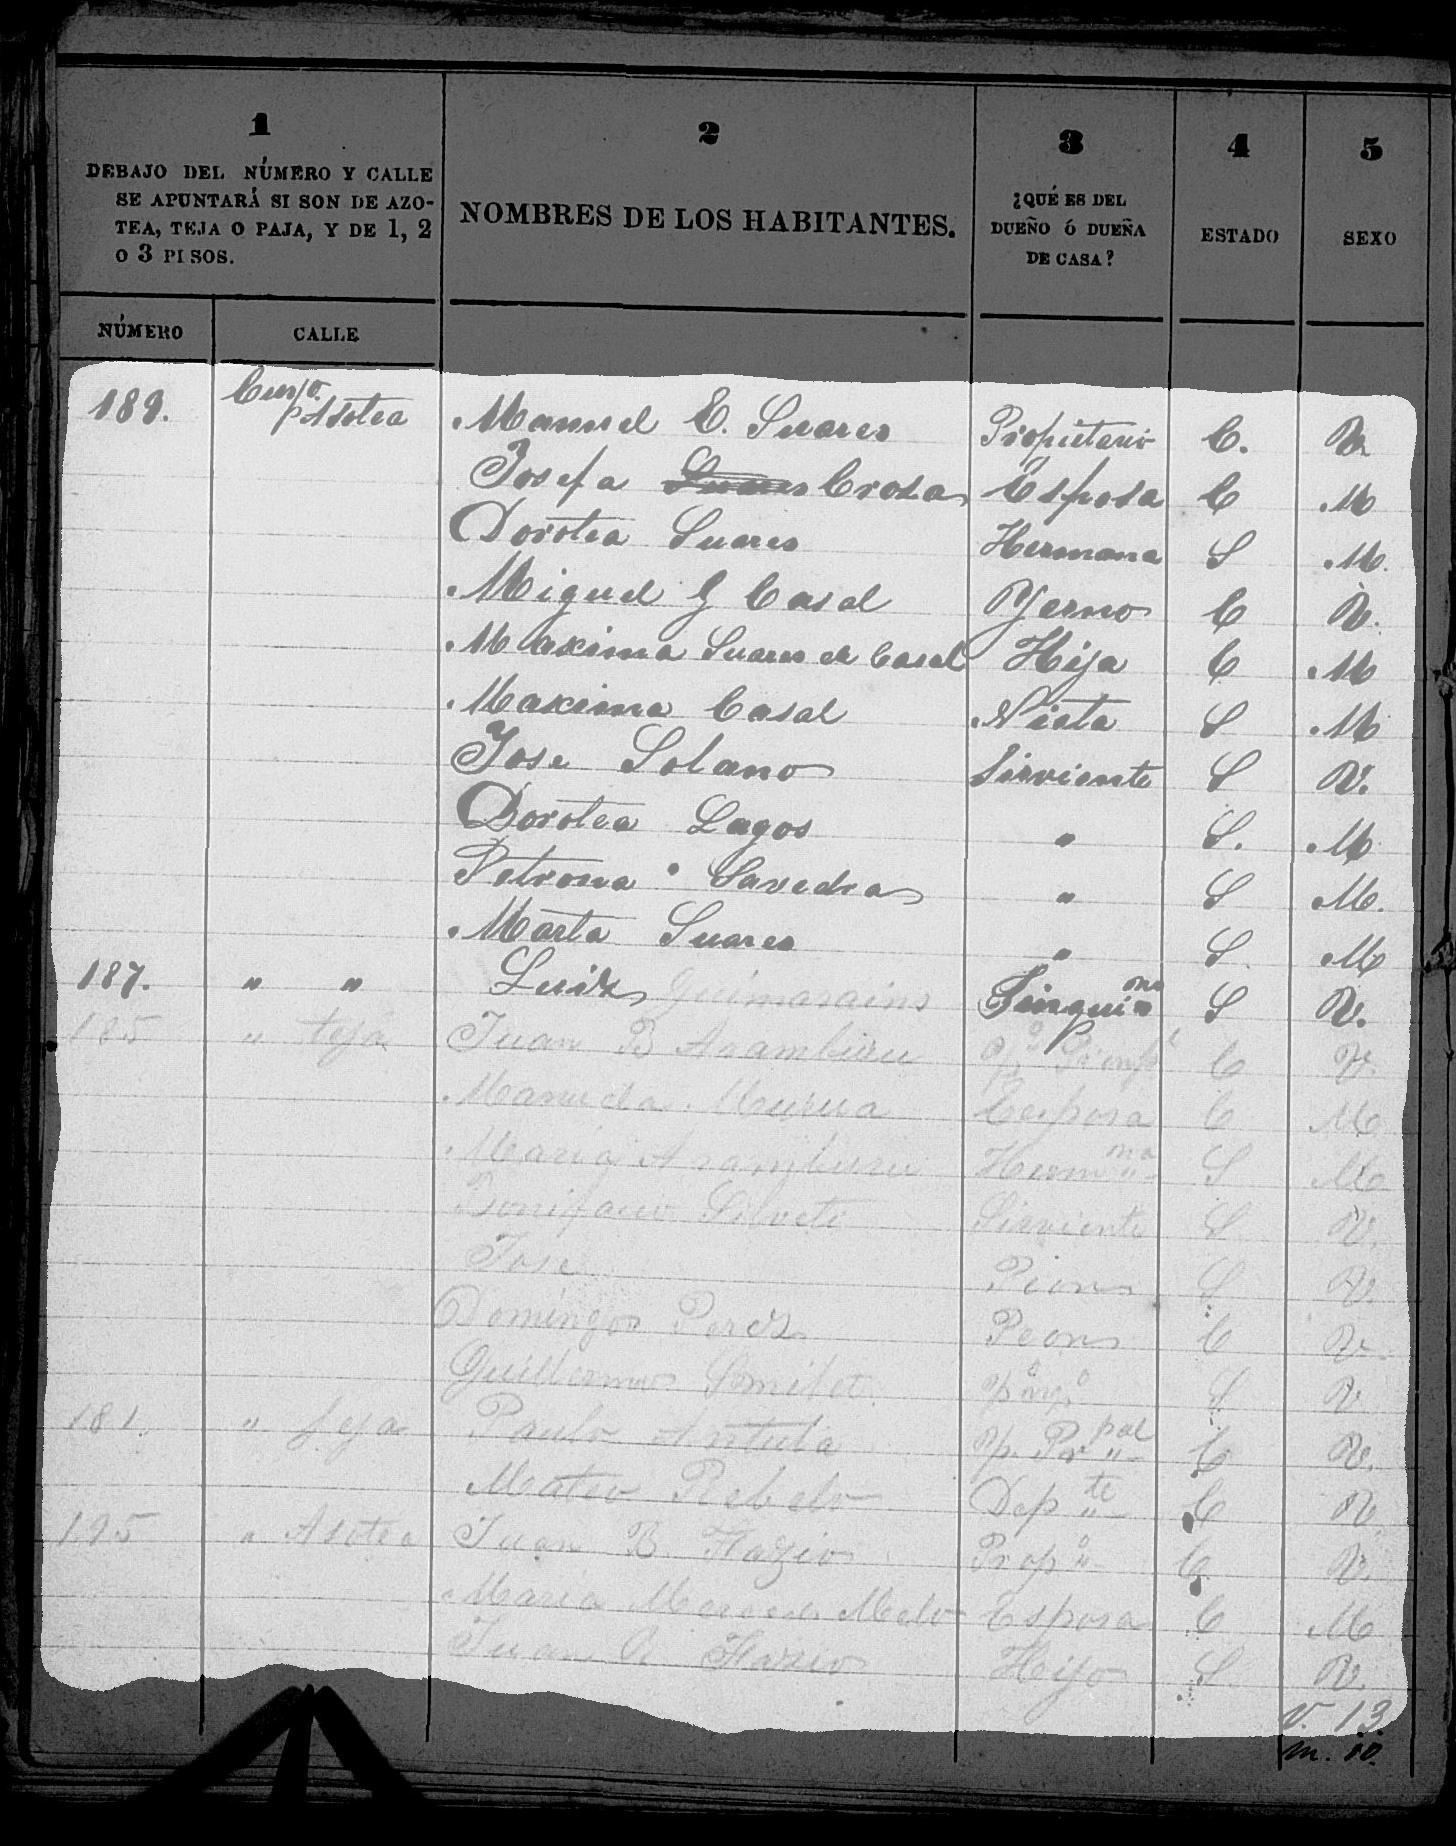 1 2 3 4 5
DEBAJO DEL NÚMERO Y CALLE
SE APUNTARÁ SI SON DE AZO-
TEA, TEJA O PAJA, Y DE 1, 2
O 3 PISOS.
NOMBRES DE LOS HABITANTES.
¿QUÉ ES DEL
DUEÑO Ó DUEÑA
DE CASA?
ESTADO
SEXO
NÚMERO CALLE
189. Asotea Manuel E. Suares Propietario C. V.
Josefa Crosa Esposa C M
Dorotea Suares Hermana S M.
Miguel G Casal Yerno C V.
Maxima Suares de Casal Hija C M
Maxima Casal Nieta S M
Jose Solano Sirviente S V.
Dorotea Lagos " S. M
Petrona Savedra " S M.
Marta Suares " S. M
187. " " Luis Guimarains S V.
185 " teja Juan B Aramburu C V.
Manuela Murua Esposa C M
Maria Aramburu Herm na S M
Bonifacio Silveti Sirviente S V.
Jose Pion S V.
Domingo Perez Peon C V.
Guillermo S V
181. " Paulo Pr pal C V.
Mateo Rebelo Dep te C V.
195 " Asotea Juan B. Fazio Prop o C V.
Maria Mercedes Melo Esposa C M
Juan Fazio Hijo S. V.
V. 13.
m. 10.